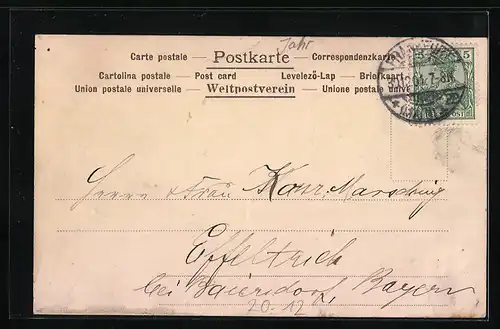 Jahr
Carte postale — Postkarte — Correspondenzkarte
Cartolina postale — Post card Levelező-Lap — Briefkaart
Union postale universelle — Weltpostverein — Unione postale
5
7-8
Herrn & Frau
Effeltrich
bei Baiersdorf, Bayern
20-12